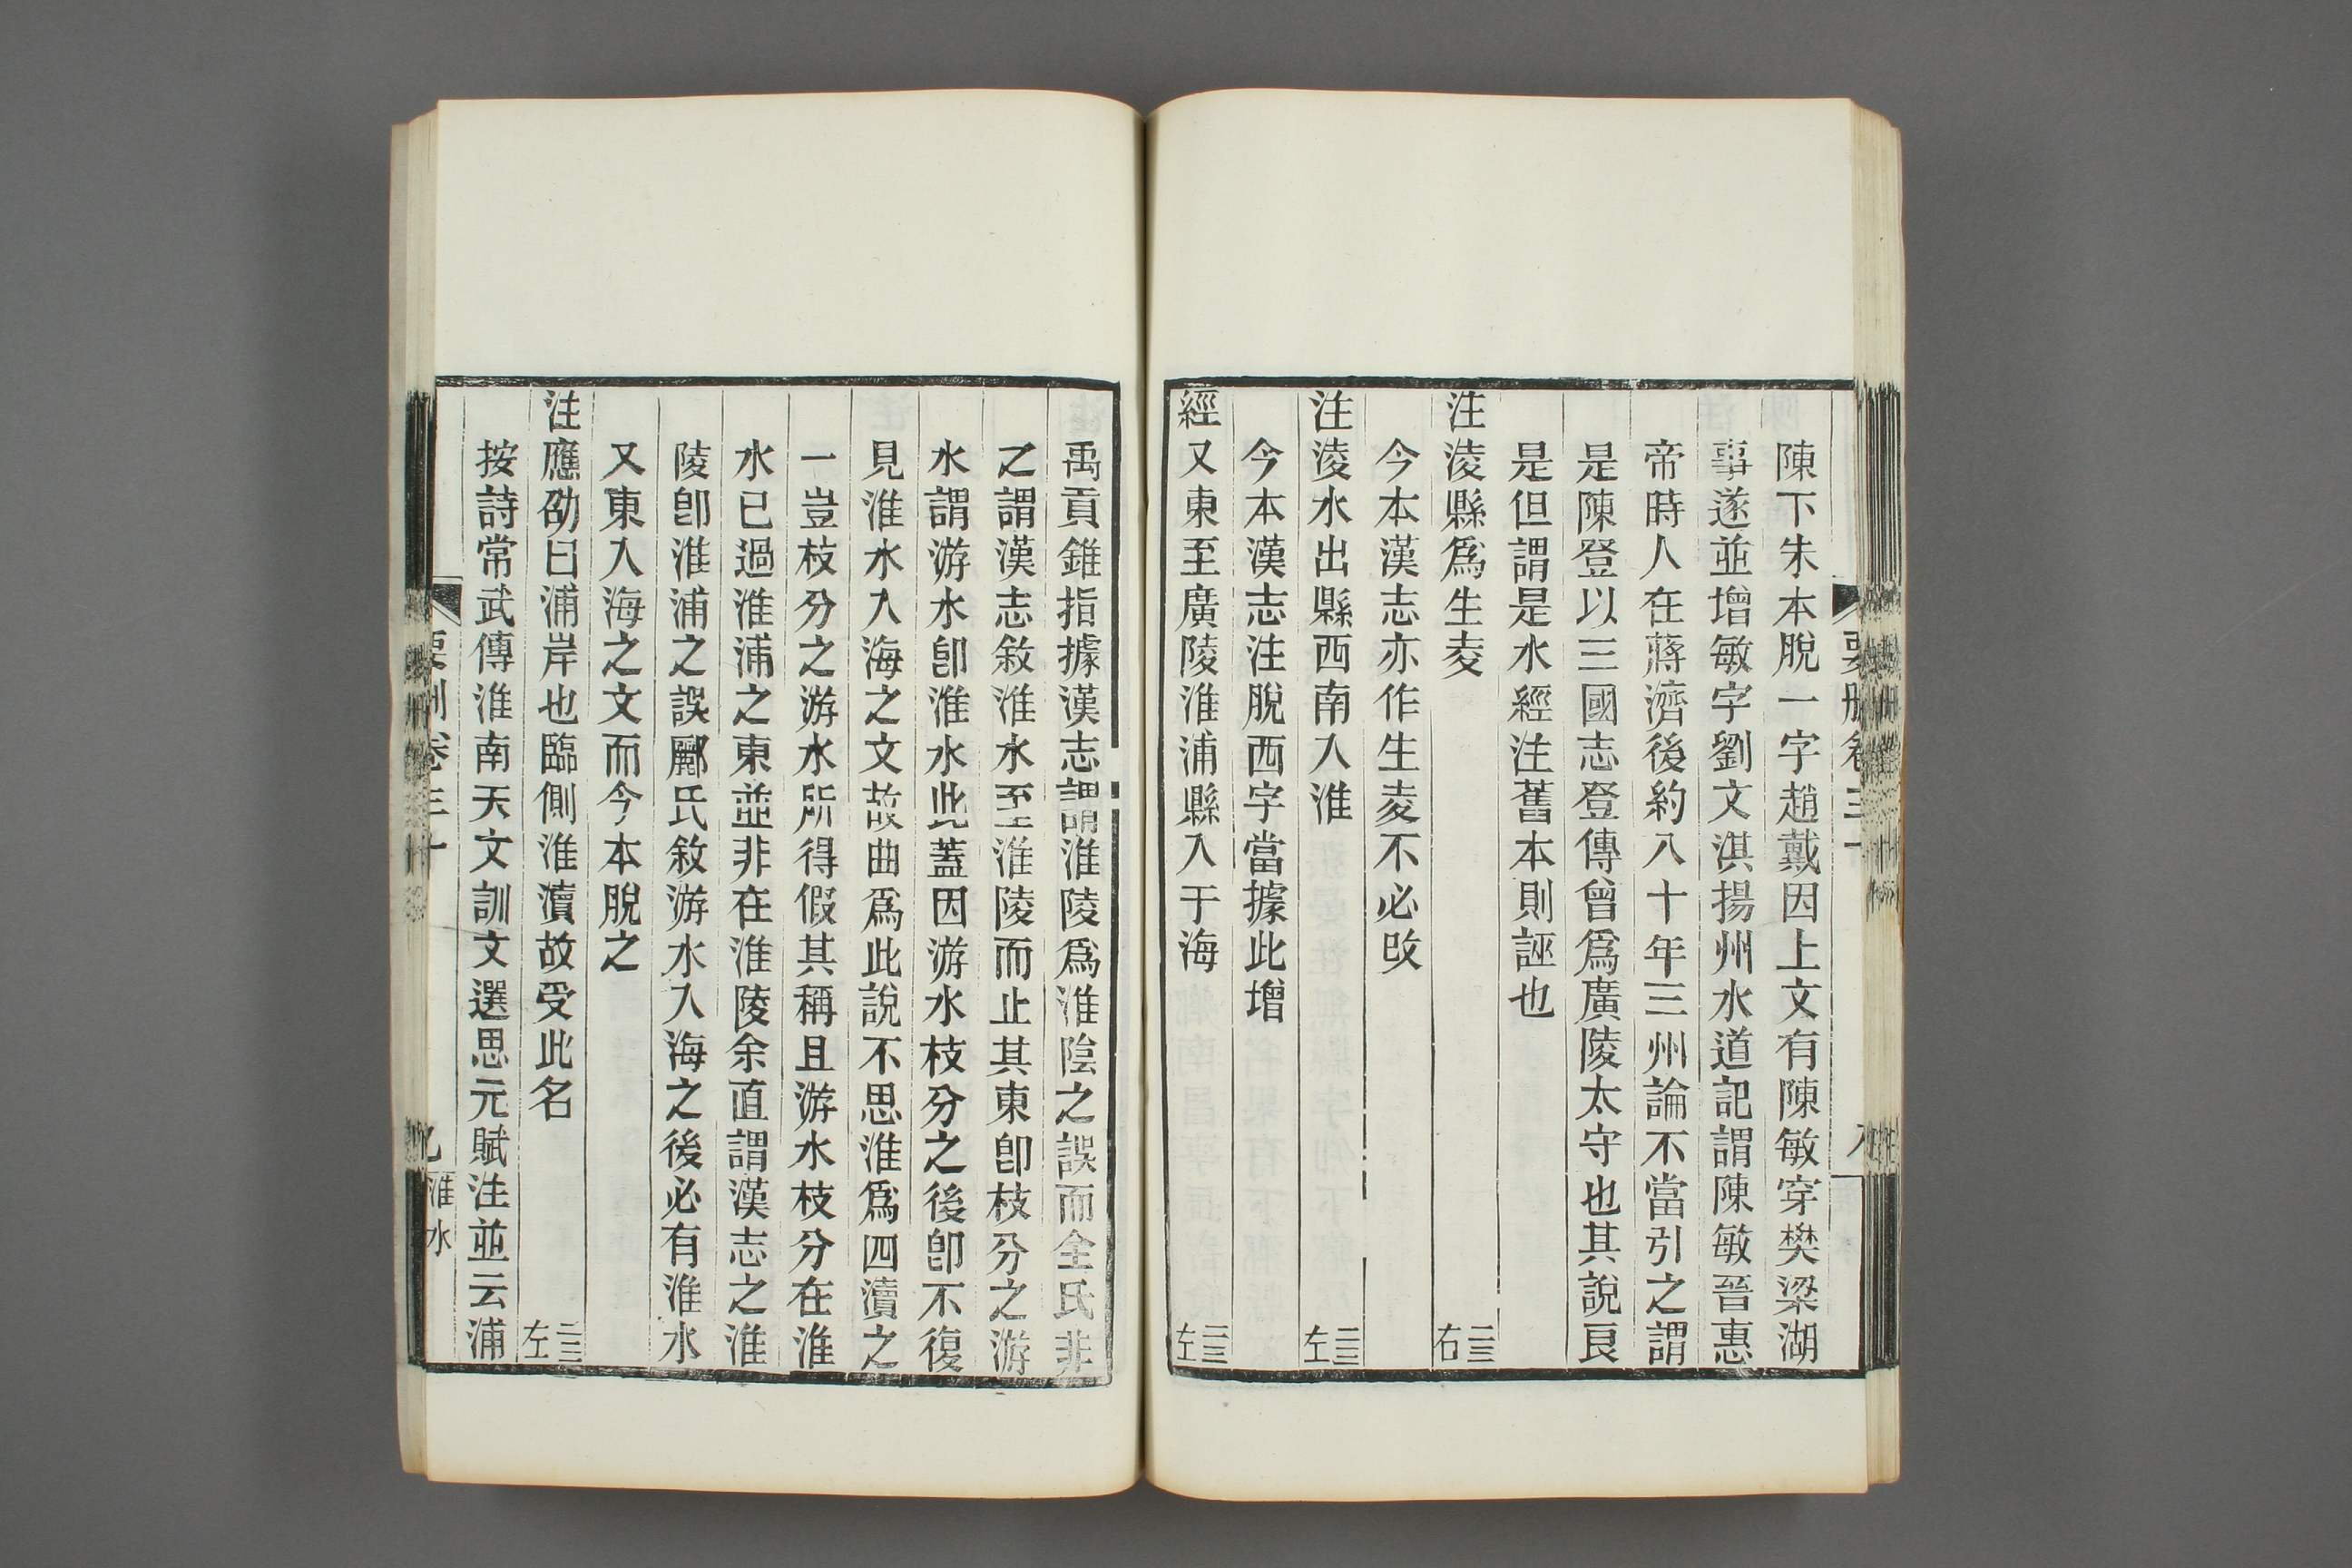 陳下朱本脫一字趙戴因上文有陳敏穿樊梁湖
事遂並增敏字劉文淇揚州水道記謂陳敏晉惠
帝時人在蔣濟後約八十年三州論不當引之謂
是陳登以三國志登傳曾爲廣陵太守也其說良
是但謂是水經注舊本則誣也
注淩縣爲生夌 二三右
今本漢志亦作生夌不必改
注淩水出縣西南入淮 二三左
今本漢志注脫西字當據此增
經又東至廣陵淮浦縣入于海 二三左
禹貢錐指據漢志謂淮陵爲淮陰之誤而全氏非
之謂漢志敘淮水至淮陵而止其東卽枝分之游
水謂游水卽淮水此蓋因游水枝分之後卽不復
見淮水入海之文故曲爲此說不思淮爲四瀆之
一豈枝分之游水所得假其稱且游水枝分在淮
水已過淮浦之東並非在淮陵余直謂漢志之淮
陵卽淮浦之誤酈氏敘游水入海之後必有淮水
又東入海之文而今本脫之
注應劭曰浦岸也臨側淮瀆故受此名 二三左
按詩常武傳淮南天文訓文選思元賦注並云浦
淮水